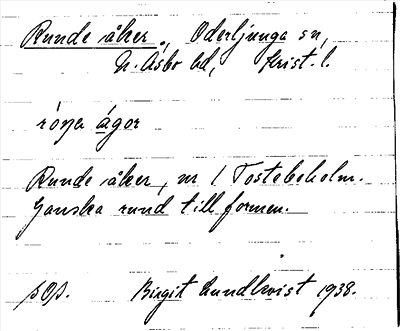 Runde åker, Oderljunga sn,
N. Åsbo hd, Krist. l.
róŋa ágor
Runde åker, nr 1 Tostebeholm.
Ganska rund till formen.
pop. Birgit Lundkvist 1938.